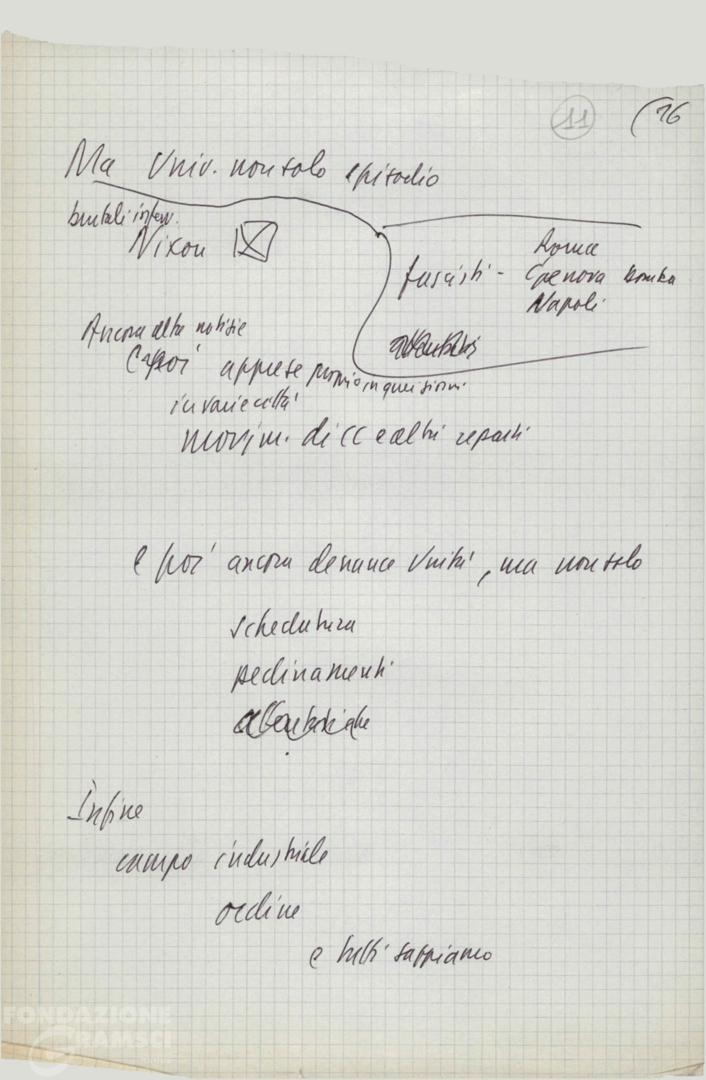 11 (76
Ma Univ. non solo episodio
brutali interv.
Nixon
fascisti - Roma
Genova bomba
Napoli
Ancora altre notizie
apprese proprio in questi giorni
in varie città
movim. di CC e altri reparti
e poi ancora denunce Unità, ma non solo
schedatura
pedinamenti
Infine
campo industriale
ordine
e tutti sappiamo
FONDAZIONE
GRAMSCI